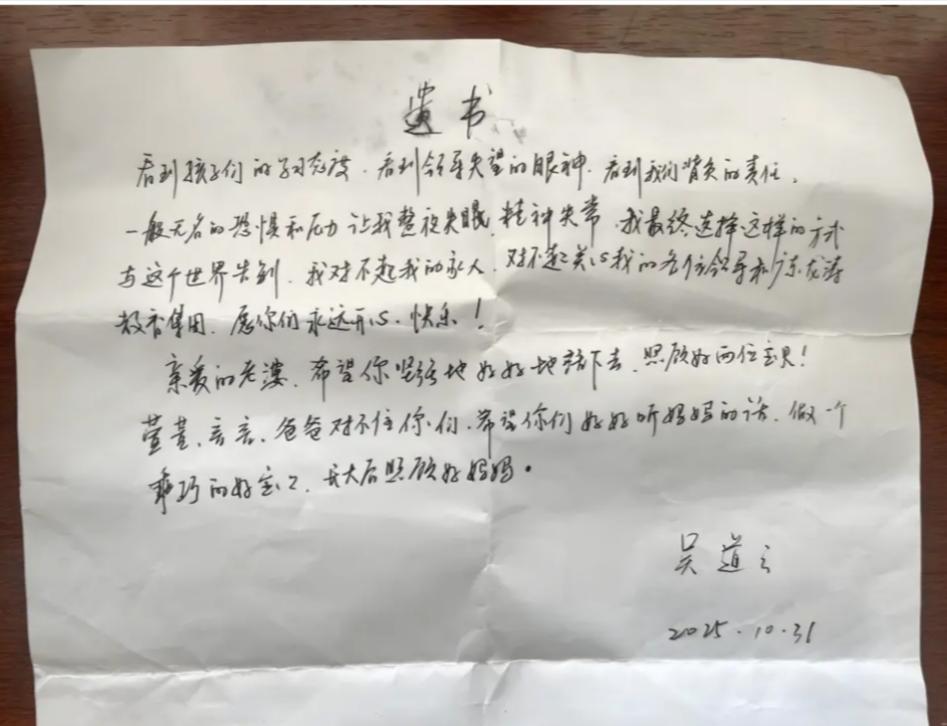 遗书
看到孩子们的学习态度、看到领导失望的眼神、看到我们背负的责任、
一般无名的恐惧和压力让我整夜失眠、精神失常、我最终选择这样的方式
与这个世界告别、我对不起我的家人、对不起关心我的各位领导和广东龙涛
教育集团、愿你们永远开心、快乐!
亲爱的老婆、希望你坚强地好好地活下去、照顾好两位宝贝!
萱萱、言言、爸爸对不住你们、希望你们好好听妈妈的话、做一个
乖巧的好宝宝、长大后照顾好妈妈。
吴道云
2025.10.31